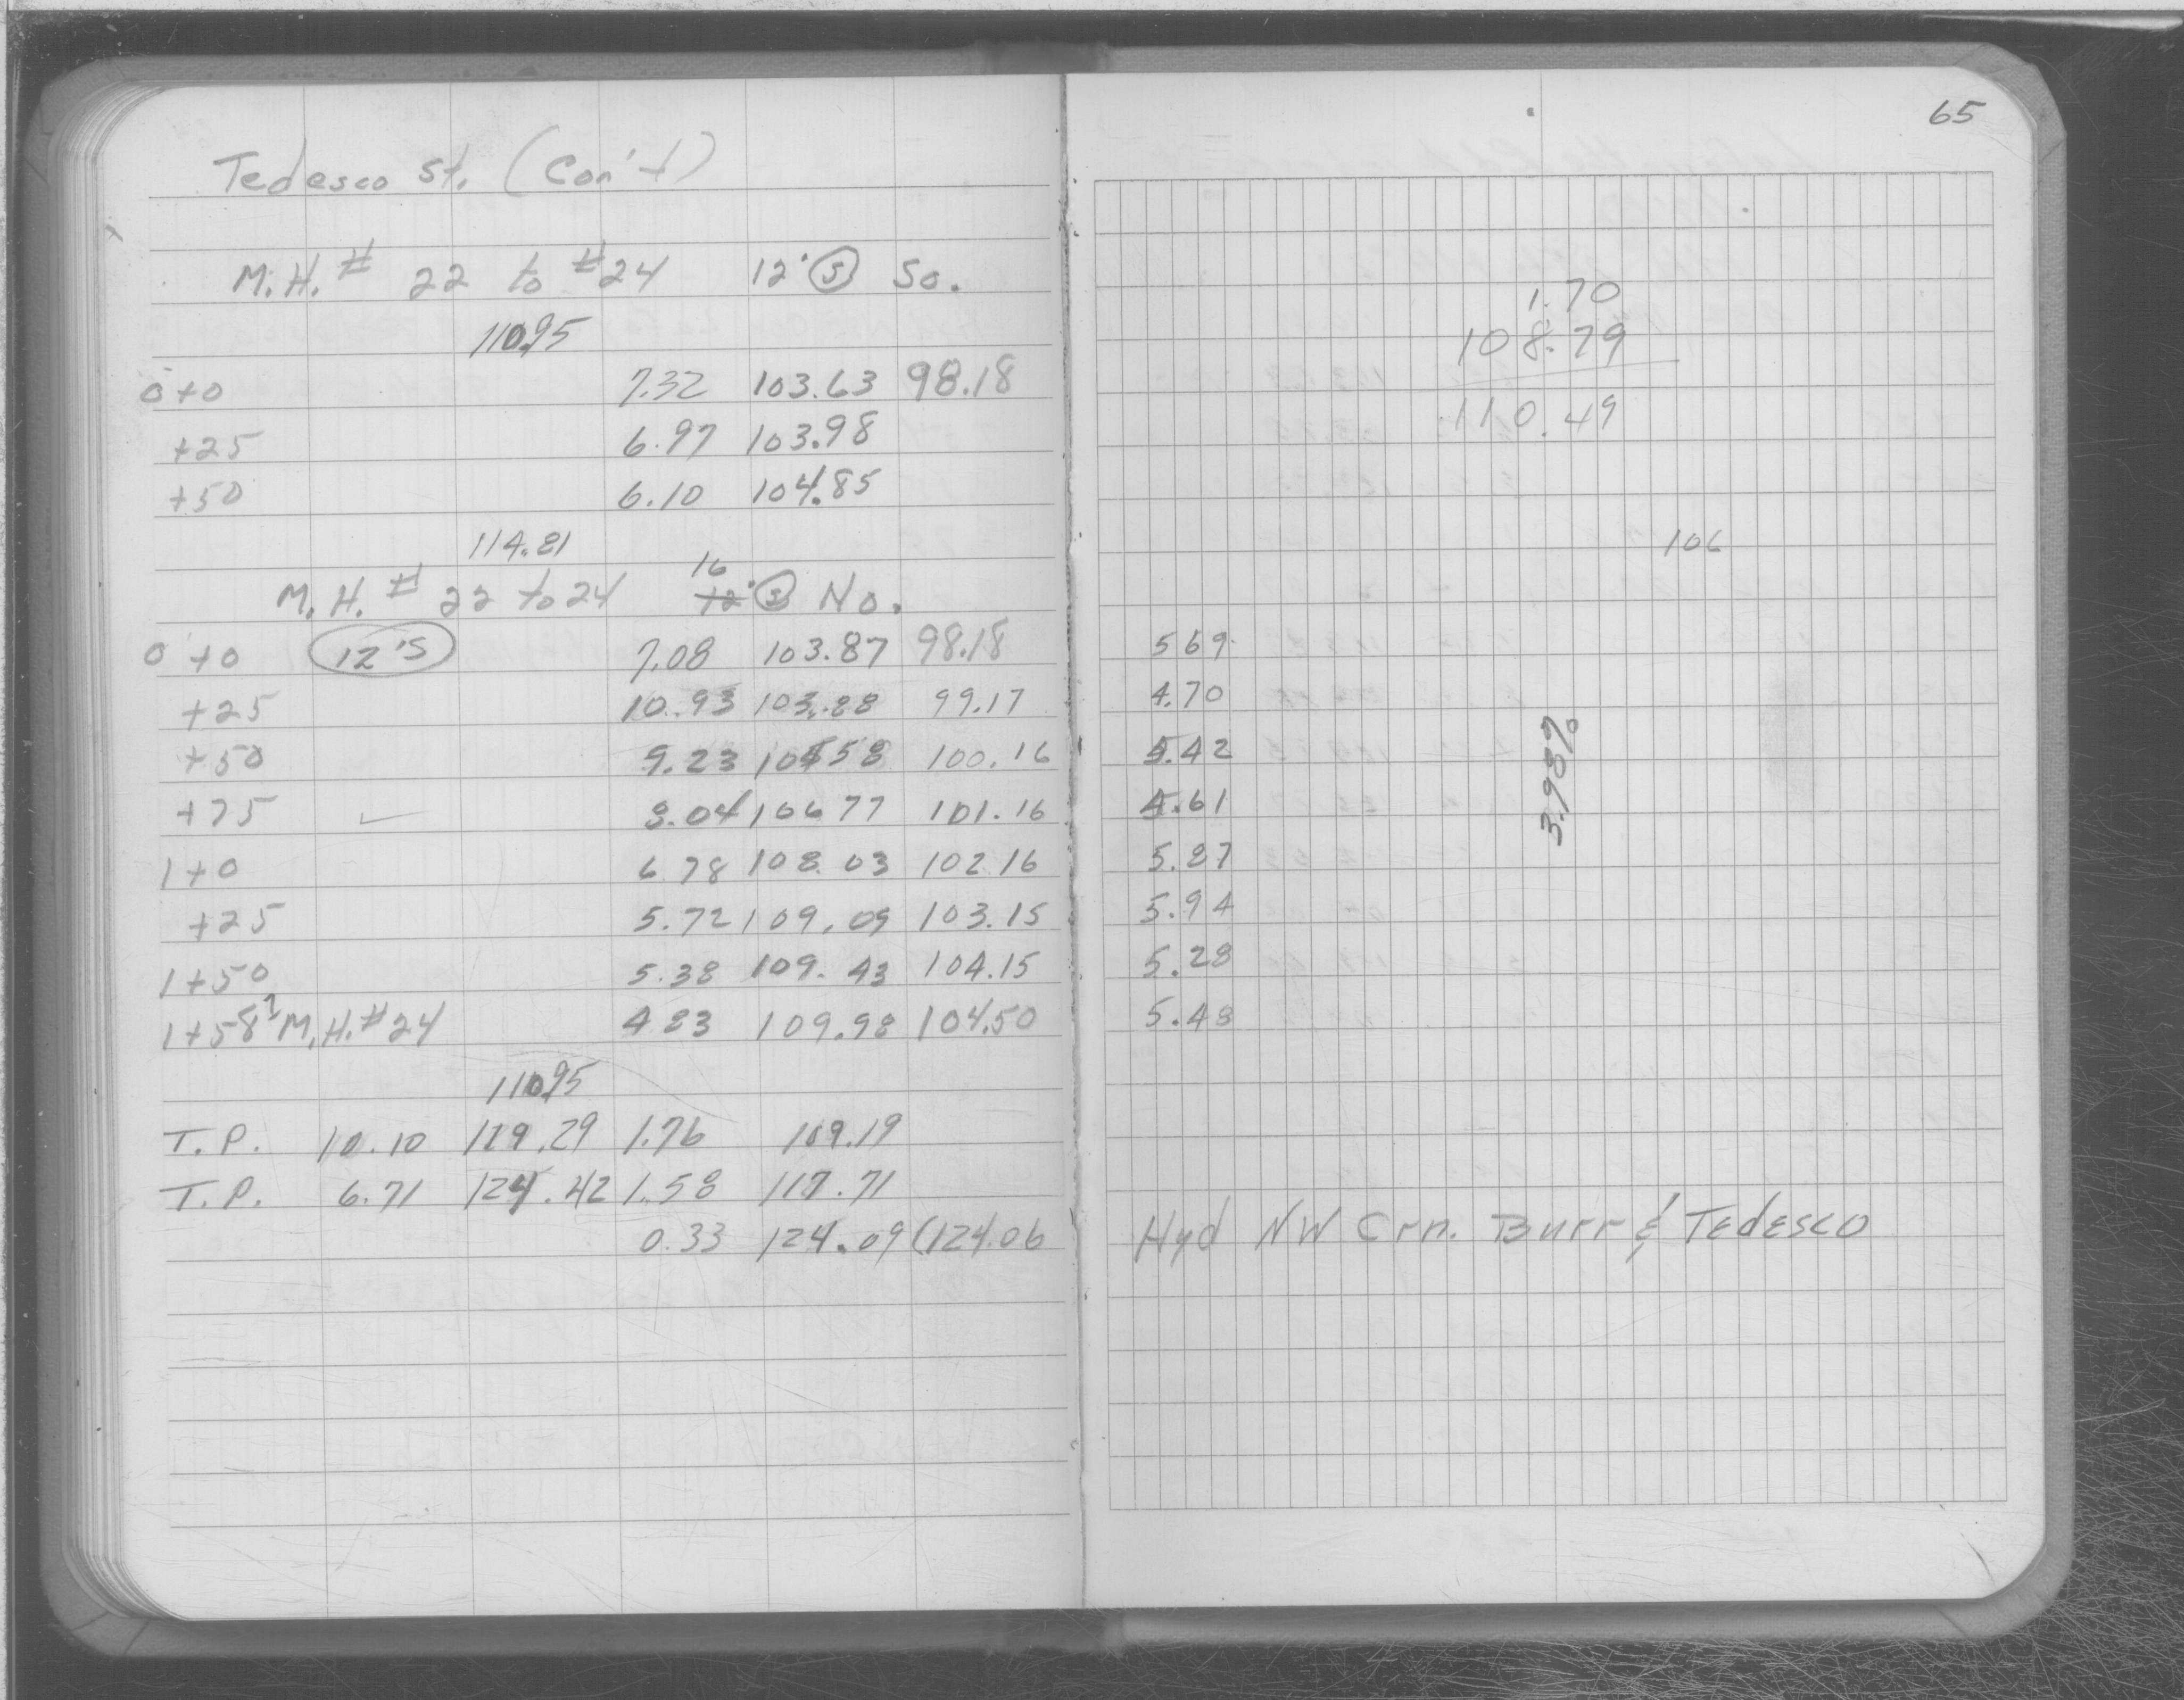 Tedesco St. (Con't)
M.H. # 22 to #24 12' S So.
110.95
0+0 7.32 103.63 98.18
+25 6.97 103.98
+50 6.10 104.85
114.81
16
M.H. # 22 to 24 12' S No.
0+0 12'S 7.08 103.87 98.18
+25 10.93 103.88 99.17
+50 9.23 105.58 100.16
+75 8.04 106.77 101.16
1+0 6.78 108.03 102.16
+25 5.72 109.09 103.15
1+50 5.38 109.43 104.15
1+58 M.H. #24 4.83 109.98 104.50
110.95
T.P. 10.10 119.29 1.76 109.19
T.P. 6.71 124.42 1.58 117.71
0.33 124.09 (124.06
65
1.70
108.79
110.49
106
5 69
4.70
5.42
5.61
5.87
5.94
5.28
5.48
3.98%
Hyd NW Crn. Burr & Tedesco